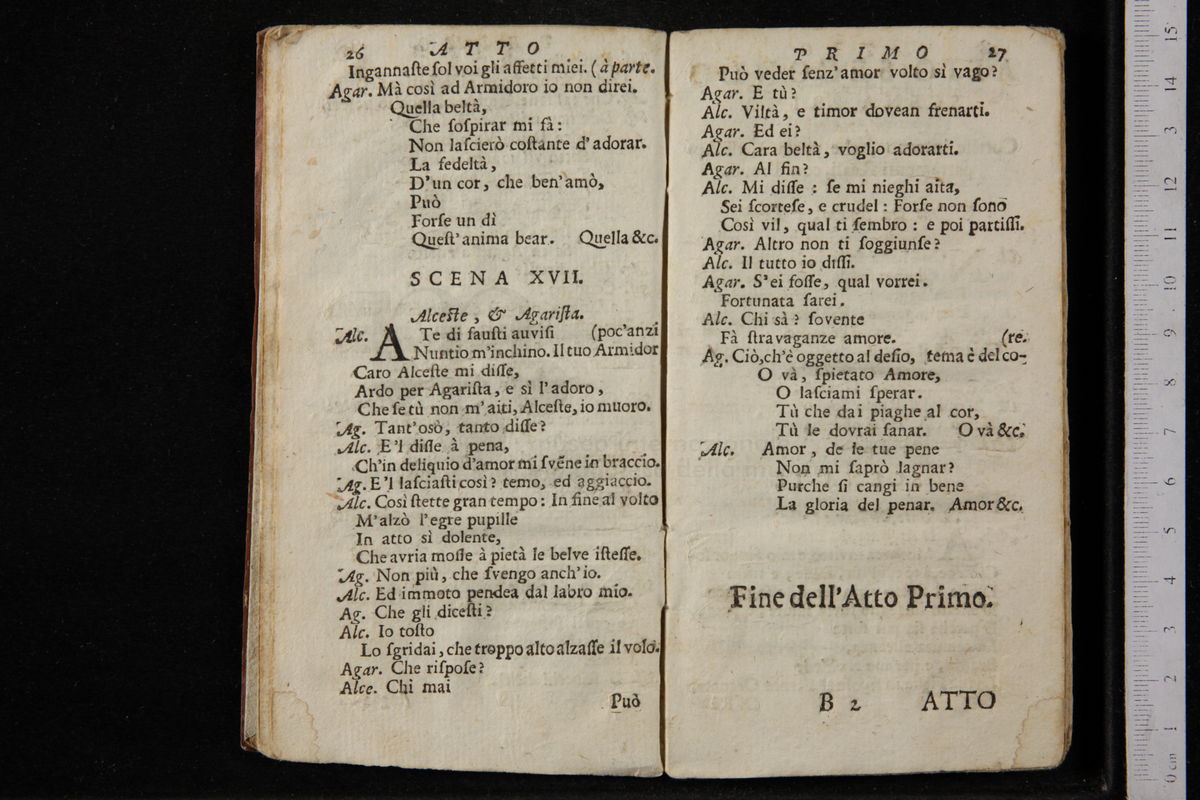 26 ATTO
Ingannaſte ſol voi gli affetti miei. (à parte.
Agar. Mà così ad Armidoro io non direi.
Quella beltà,
Che ſoſpirar mi fà:
Non laſcierò coſtante d'adorar.
La fedeltà,
D'un cor, che ben'amò,
Può
Forſe un dì
Queſt'anima bear. Quella &c.
SCENA XVII.
Alceſte, & Agariſta.
Alc. A Te di fauſti auviſi (poc'anzi
Nuntio m'inchino. Il tuo Armidor
Caro Alceſte mi diſſe,
Ardo per Agariſta, e sì l'adoro,
Che ſe tù non m'aiti, Alceſte, io muoro.
Ag. Tant'osò, tanto diſſe?
Alc. E'l diſſe à pena,
Ch'in deliquio d'amor mi ſvēne in braccio.
Ag. E'l laſciaſti così? temo, ed aggiaccio.
Alc. Così ſtette gran tempo: In fine al volto
M'alzò l'egre pupille
In atto sì dolente,
Che avria moſſe à pietà le belve iſteſſe.
Ag. Non più, che ſvengo anch'io.
Alc. Ed immoto pendea dal labro mio.
Ag. Che gli diceſti?
Alc. Io toſto
Lo ſgridai, che troppo alto alzaſſe il volo.
Agar. Che riſpoſe?
Alce. Chi mai
Può
PRIMO 27
Può veder ſenz'amor volto sì vago?
Agar. E tù?
Alc. Viltà, e timor dovean frenarti.
Agar. Ed ei?
Alc. Cara beltà, voglio adorarti.
Agar. Al fin?
Alc. Mi diſſe: ſe mi nieghi aita,
Sei ſcorteſe, e crudel: Forſe non ſono
Così vil, qual ti ſembro: e poi partiſſi.
Agar. Altro non ti ſoggiunſe?
Alc. Il tutto io diſſi.
Agar. S'ei foſſe, qual vorrei.
Fortunata ſarei.
Alc. Chi sà? ſovente
Fà ſtravaganze amore. (re.
Ag. Ciò, ch'è oggetto al deſio, tema è del co-
O và, ſpietato Amore,
O laſciami ſperar.
Tù che dai piaghe al cor,
Tù le dovrai ſanar. O và &c.
Alc. Amor, de le tue pene
Non mi ſaprò lagnar?
Purche ſi cangi in bene
La gloria del penar. Amor &c.
Fine dell'Atto Primo.
B 2 ATTO
15
14
13
12
11
10
9
8
7
6
5
4
3
2
1
0 cm